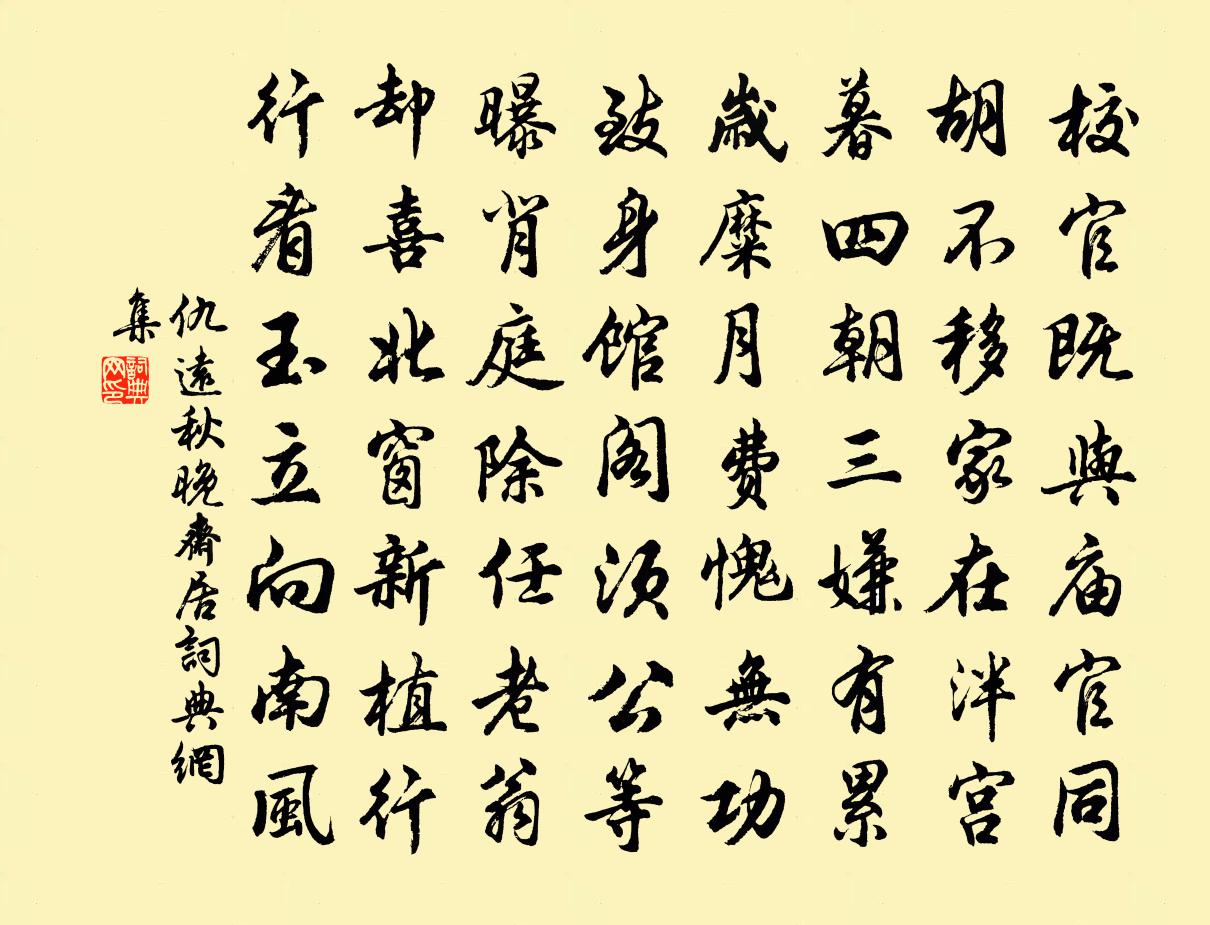 校官既與廟官同
胡不移家在泮宮
暮四朝三嫌有累
歲糜月費愧無功
致身館閣須公等
曝背庭除任老翁
却喜北窗新植行
行看玉立向南風
仇遠秋晚齋居詞典網
集
詞典
网印